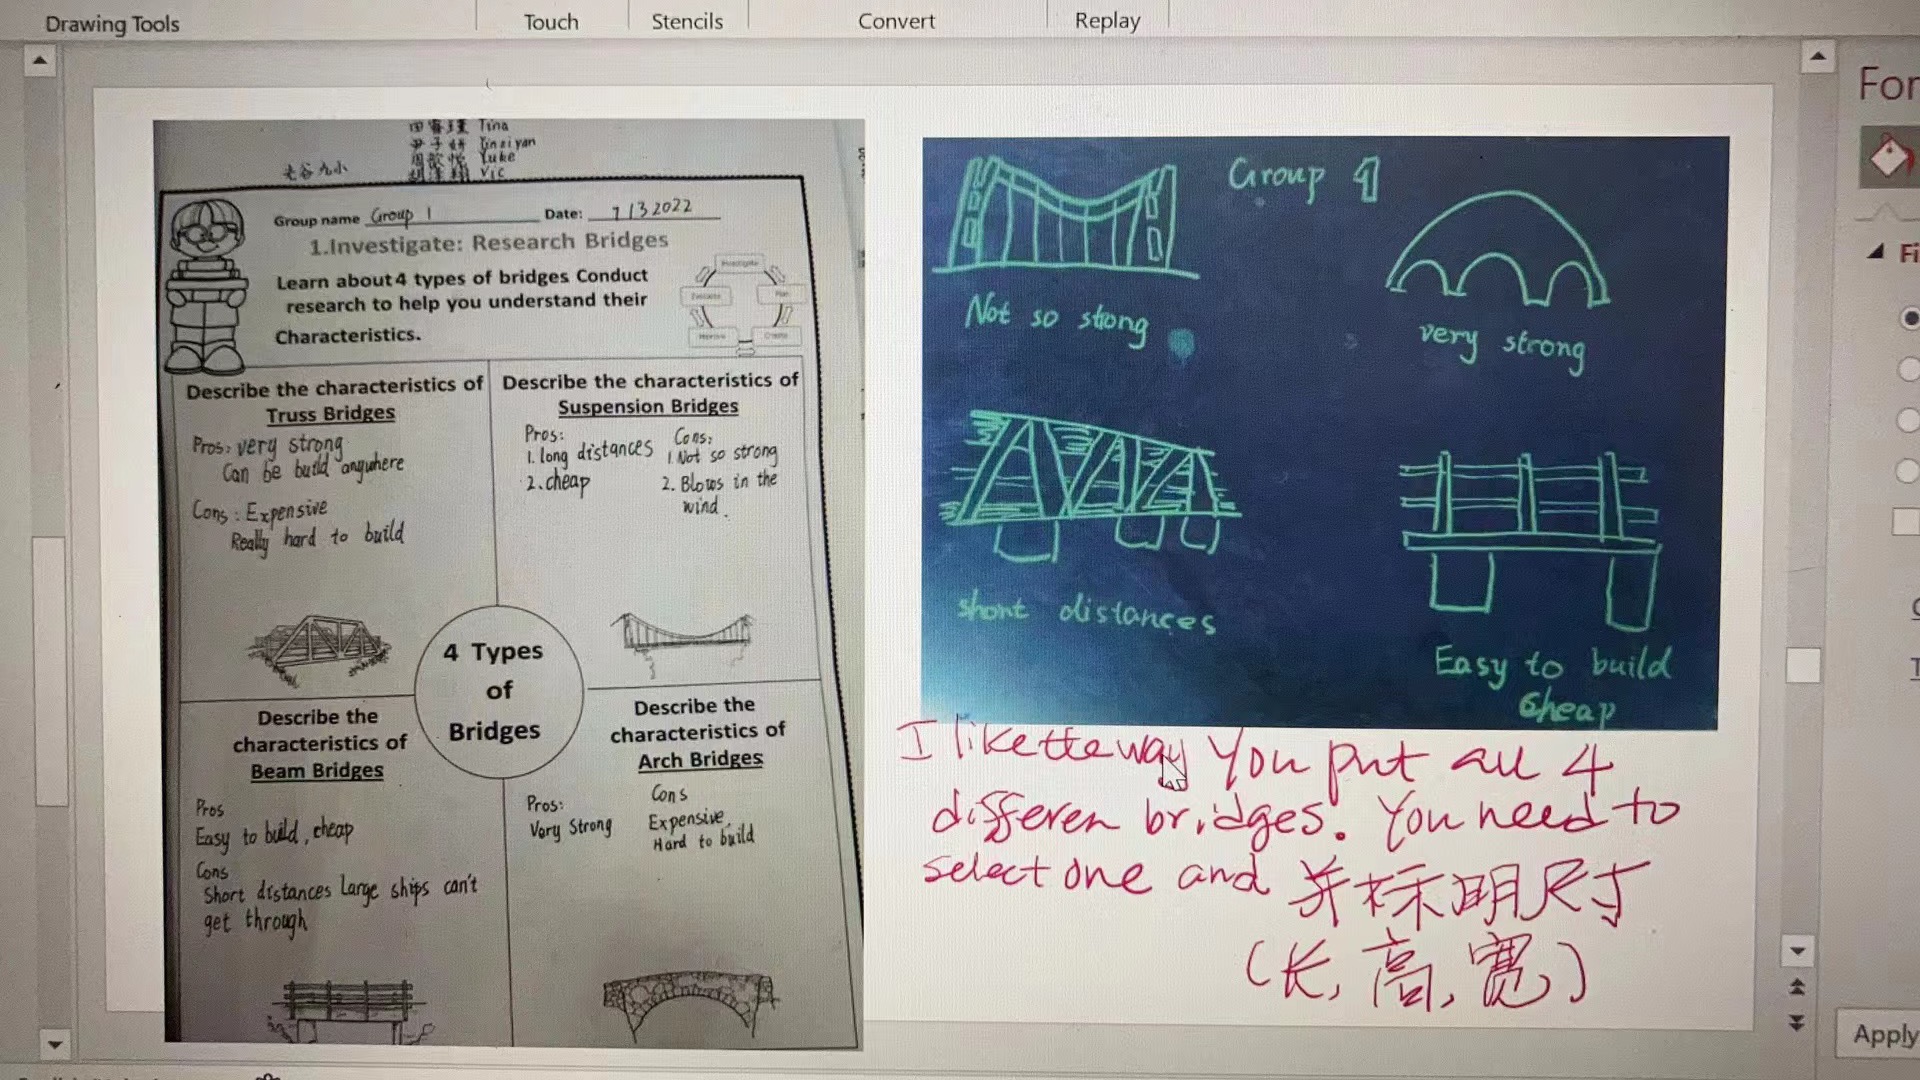 Drawing Tools
Touch
Stencils
Convert
Replay
For
Fi
Apply
Tina
Yuke
Vic
九小
Group name Group 1 Date: 7/3 2022
1.Investigate: Research Bridges
Learn about 4 types of bridges Conduct
research to help you understand their
Characteristics.
Describe the characteristics of
Truss Bridges
Pros: very strong
Can be build anywhere
Cons: Expensive
Really hard to build
Describe the characteristics of
Suspension Bridges
Pros:
1. long distances
2. cheap
Cons:
1. Not so strong
2. Blows in the
wind.
4 Types
of
Bridges
Describe the
characteristics of
Beam Bridges
Pros
Easy to build, cheap
Cons
Short distances Large ships can't
get through
Describe the
characteristics of
Arch Bridges
Pros:
Very Strong
Cons
Expensive
Hard to build
Group 1
Not so strong
very strong
short distances
Easy to build
Cheap
I like the way you put all 4
differen bridges. You need to
select one and 并标明尺寸
(长, 高, 宽)